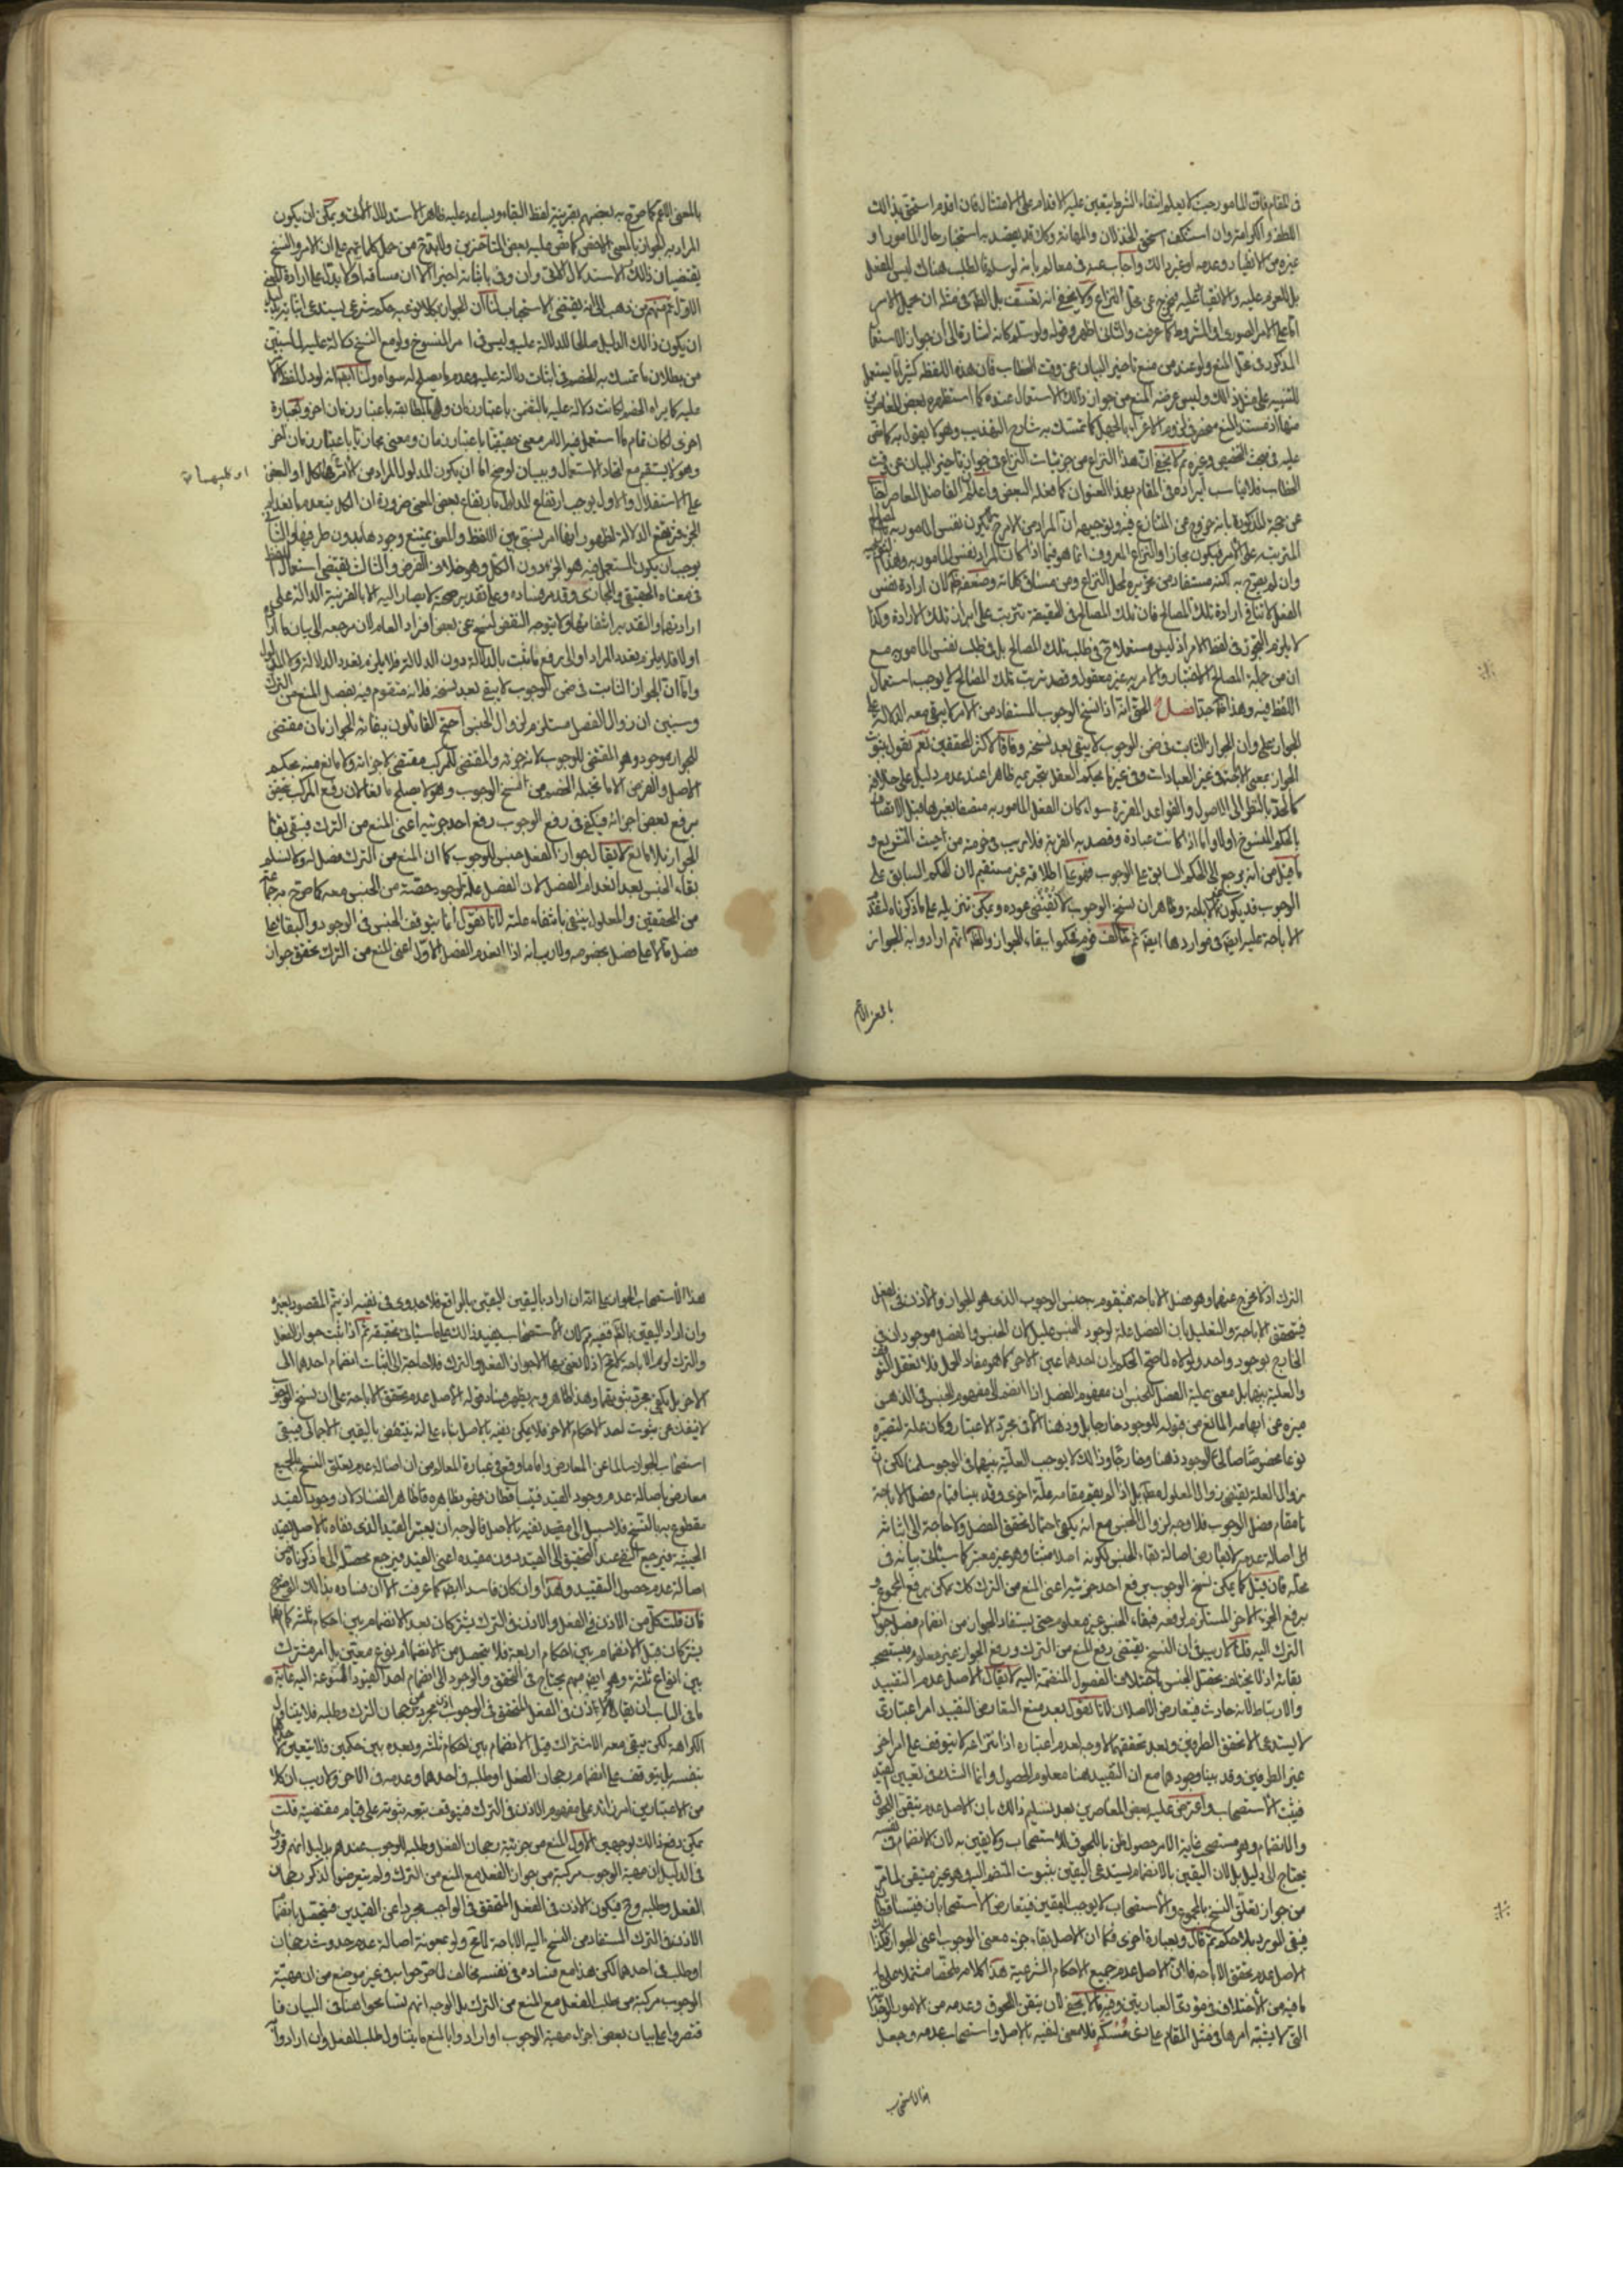 في المقام فان المامور حيث لا يعلم انتفاء الشرط يتعين عليه الاقدام على الامتثال فان اقدم استحق بذلك
اللطف والكرامة وان استنكف استحق الخذلان والمهانة وكك قد يقصد به استخبار حال المامور او
غيره من الانقياد وعدمه او غير ذلك واجاب عنه في معالم بانه لو سلم فالطلب هناك ليس للفعل
بل للعزم عليه والانقياد اليه فيخرج عن محل النزاع ولا يخفى انه تعسف بل الظ في مثله ان يحمل الامر
اما على الامر الصوري او المشروط كما عرفت والثاني اظهر وقوله ولو سلم كانه اشارة الى ان جواز الاستعمال
المذكور في محل المنع ولو عند من منع تاخير البيان عن وقت الخطاب فان هذه اللفظة كثيرا ما يستعمل
للتنبيه على مثل ذلك وليس غرضه المنع من جواز ذلك الاستعمال عنده كما استظهره بعض المعاصرين
عليه في مبحث التخصيص وغيره ثم لا يخفى ان هذا النزاع من جزئيات النزاع في جواز تاخير البيان عن وقت
الخطاب فلا يناسب ايراده في المقام بهذا العنوان كما فعله البعض واعلم ان الفاضل المعاصر اجاب
عن حجة المذكورة بانه خروج عن المتنازع فيه وتوجيهه ان المراد من الامر ح يكون نفس المامور به
المترتبة على الامر فيكون مجازا والنزاع المعروف انما هو فيما اذا كان المراد نفس المامور به وهذا
وان لم يصرح به لكنه مستفاد من تحريره لمحل النزاع ومن مساق كلماته وضعفه ظ لان ارادة نفس
الفعل لا تنافي ارادة تلك المصالح فان تلك المصالح في الحقيقة تترتب على ابراز تلك الارادة وكذا
لا يلزم التجوز في لفظ الامر اذ ليس مستعملا ح في طلب تلك المصالح بل في طلب نفس المامور به مع
ان من جملة المصالح الاختبار والامر به غير معقول وقصد ترتب تلك المصالح لا يوجب استعمال
اللفظ فيه وهذا ظ جدا فصل الحق انه اذا نسخ الوجوب المستفاد من الامر لا يبقى معه الدلالة على
الجواز وان الجواز الثابت في ضمن الوجوب لا يبقى بعد نسخه وفاقا لاكثر المحققين نعم نقول بثبوت
الجواز بمعنى الاباحة في غير العبادات وفي غير ما يحكم العقل بتحريمه ظاهرا عند عدم دليل على خلافه
كالحظر بالنظر الى الاصول والقواعد المقررة سواء كان الفعل المامور به متصفا بغيرها قبل الاتصاف
بالحكم المنسوخ او لا واما اذا كانت عبادة وقصد به القربة فلا ريب في حرمته من حيث التشريع و
ما قيل من انه يرجع الى الحكم السابق على الوجوب فهو على اطلاقه غير مستقيم لان الحكم السابق على
الوجوب قد يكون غير الاباحة وظاهر ان نسخ الوجوب لا يقتضي عوده ويمكن تنزيله على ما ذكرناه لتقدم
الاباحة عليه ايض في مواردها ايض ثم خالف قوم فحكموا ببقاء الجواز والظ انهم ارادوا به الجواز
بالمعنى الاعم
بالمعنى الاعم كما صرح به بعضهم بقرينة لفظ البقاء ويساعد عليه ظاهر الاستدلال الاتي ويمكن ان يكون
المراد به الجواز بالمعنى الاخص كما نص عليه بعض المتاخرين
يقتضيان ذلك
الاول ثم منهم من ذهب الى انه يقتضي الاستحباب لنا ان الجواز بكلا نوعيه حكم شرعي يستدعي اثباته دليلا
ان يكون ذلك الدليل صالحا للدلالة عليه وليس في امر المنسوخ ولو مع النسخ دلالة عليه لما سنبين
من بطلان ما تمسك به الخصم في اثبات دلالته عليه وعدم ما يصلح له سواه ولنا ايض انه لو دل لفظ الامر
عليه كما يراه الخصم لكانت دلالته عليه بالتضمن باعتبار زمان وبالمطابقة باعتبار زمان اخر وبعبارة
اخرى لكان قام ما استعمل فيه الامر معنى حقيقيا باعتبار زمان ومعنى مجازيا باعتبار زمان اخر
وهو لا يستقيم مع اتحاد الاستعمال وبيان لوضح اما ان يكون المدلول المراد من الامر هو الكل او البعض
او كليهما
على الاستقلال والاول يوجب ارتفاع المدلول بارتفاع بعض المعنى ضرورة ان الكل ينعدم بانعدام
الجزء فترتفع الدلالة لظهور انها امر نسبي بين اللفظ والمعنى يمتنع وجودها بدون طرفيها والثاني
يوجب ان يكون المستعمل فيه هو الجزء دون الكل وهو خلاف الفرض والثالث يقتضي استعمال اللفظ
في معناه الحقيقي والمجازي وقد مر فساده وعلى تقدير صحته لا يصار اليه الا بالقرينة الدالة على
ارادتهما والتقدير انتفاؤها ولا يتوجه النقض بنسخ عن بعض افراد العام لان مرجعه الى بيان ما اراد
اولا فلا يلزم تعدد المراد او الى رفع ما ثبت بالدلالة دون الدلالة فلا يلزم تعدد الدلالة ولا المدلول
واما ان الجواز الثابت في ضمن الوجوب لا يبقى بعد نسخه فلانه متقوم فيه بفصل المنع من الترك
وسنبين ان زوال الفصل مستلزم لزوال الجنس احتج القائلون ببقاء الجواز بان مقتضى
الجواز موجود وهو المقتضي للوجوب لانه جزئه والمقتضي للمركب مقتض لاجزائه ولا مانع منه بحكم
الاصل والفرض الا ما تخيله الخصم من نسخ الوجوب وهو لا يصلح مانعا لان رفع المركب يتحقق
برفع بعض اجزائه فيكفي في رفع الوجوب رفع احد جزئيه اعني المنع من الترك فيبقى بقاء
الجواز بلا مانع لا يقال جواز الفعل جنس للوجوب كما ان المنع من الترك فصل له ولا نسلم
بقاء الجنس بعد انعدام الفصل لان الفصل علة لوجود حصة من الجنس معه كما صرح به جماعة
من المحققين والمعلول ينتفي بانتفاء علته لانا نقول انما يتوقف الجنس في الوجود والبقاء على
فصل ما لا على فصل بخصوصه ولا ريب انه اذا انعدم الفصل الاول اعني المنع من الترك تحقق جواز
الترك اذ لا مخرج عنهما وهو فصل الاباحة فيتقوم به جنس الوجوب الذي هو الجواز والاذن في الفعل
فيتحقق الاباحة والتعليل بان الفصل علة لوجود الجنس عليل لان الجنس والفصل موجودان في
الخارج بوجود واحد ولولاه لما صح الحكم بان احدهما عين الاخر كما هو مفاد الحمل فلا يعقل التوقف
والعلية بينهما بل معنى علية الفصل للجنس ان مفهوم الفصل اذا انضم الى مفهوم الجنس في الذهن
ميزه عن ابهامه المانع من قبوله للوجود خارجا بل وذهنا الا في مجرد الاعتبار وكان علة لتصيره
نوعا مخصوصا صالحا للوجود ذهنا وخارجا وذلك لا يوجب العلية بينهما في الوجود سلمنا لكن ان
زوال العلة يقتضي زوال المعلول مط بل اذا لم يقم مقامه علة اخرى وقد بينا قيام فصل الاباحة
مقام فصل الوجوب فلا وجه لزوال الجنس مع انه يكفي احتمال تحقق الفصل ولا حاجة الى اثباته
محله فان قيل كما يمكن نسخ الوجوب برفع احد جزئيه اعني المنع من الترك كك يمكن برفع المجموع و
برفع الجزء الاخر المستلزم لرفعه فبقاء الجنس غير معلوم حتى يستفاد الجواز من انضمام فصل جواز
الترك اليه قلنا لا ريب في ان النسخ يقتضي رفع المنع من الترك ورفع الجواز غير معلوم فيستصحب
بقائه اذ لا يختلف تحصل الجنس باختلاف الفصول المنضمة اليه لا يقال الاصل عدم التقييد
والارتباط لانه حادث فيتعارض الاصلان لانا نقول بعد منع التعارض التقييد امر اعتباري
لا يستدعي الا تحقق الطرفين وبعد تحققهما لا وجه لعدم اعتباره اذ انتزاعه لا يتوقف على امر اخر
غير الطرفين وقد بينا وجودهما مع ان التقييد هنا معلوم الحصول وانما الشك في تعيين القيد
فيثبت الاستصحاب واعترض عليه بعض المعاصرين بعد تسليم ذلك بان الاصل عدم تيقن اللحوق
والانضمام وهو مستصحب غاية الامر حصول ظن باللحوق للاستصحاب ولا يقين به لان الانضمام
يحتاج الى دليل بل لان اليقين بالانضمام يستدعي اليقين بثبوت المنضم اليه وهو غير متيقن لما مر
من جواز تعلق النسخ بالمجموع والاستصحاب لا يوجب اليقين فيتعارض الاستصحابان فيتساقطان
فيبقى المورد بلا حكم ثم قال وبعبارة اخرى فكما ان الاصل بقاء جزء معنى الوجوب اعني الجواز فكذا
الاصل عدم تحقق الاباحة فان الاصل عدم جميع الاحكام الشرعية هذا كلامه ملخصا مشتملا على ما
ما فيه من الاختلاف في مؤدى العبارتين وفيه ما لا يخفى لان تيقن اللحوق وعدمه من الامور الوجدانية
التي لا يشتبه امرها في مثل المقام على ذي مسكة فلا معنى لنفيه بالاصل واستصحاب عدمه وجعل
هذا الاستصحاب
هذا الاستصحاب للجواز على انه ان اراد باليقين اليقين بالواقع فلا جدوى في نفيه اذ يتم المقصود بغيره
وان اراد اليقين بالحكم ففيه ان الاستصحاب يفيد ذلك على ما سياتي تحقيقه ثم اذا ثبت جواز الفعل
والترك لزم الاباحة لا مح اذ لا نعني بها الا جواز الفعل والترك فلا حاجة الى اثبات انضمام احدهما الى
الاخر بل يكفي مجرد ثبوتهما وهذا ظاهر وبه يظهر فساد قوله الاصل عدم تحقق الاباحة على ان نسخ الوجوب
لا ينفك عن ثبوت احد الاحكام الاخر فلا يمكن نفيه بالاصل بناء على انه ينتقض باليقين الاجمالي فيبقى
استصحاب الجواز سالما عن المعارض واما ما وقع في عبارة المعالم من ان اصالة عدم تعلق النسخ بالجميع
معارض باصالة عدم وجود القيد فيتساقطان فهو بظاهره ظاهر الفساد لان وجود القيد
مقطوع به بالنسخ فلا سبيل الى قصد نفيه بالاصل فالوجه ان يعتبر القيد الذي نفاه بالاصل بقيد
الحيثية فيرجع النفي عند التحقيق الى التقييد دون مقيده اعني القيد فيرجع محصله الى ما ذكرناه من
اصالة عدم حصول التقييد وهذا وان كان فاسدا ايض كما عرفت الا ان فساده بذلك الوضوح
فان قلت كل من الاذن في الفعل والاذن في الترك يشتركان بعد الانضمام بين احكام ثلثة كما انهما
يشتركان قبل الانضمام بين احكام اربعة فلا يتحصل من الانضمام نوع معين بل امر مشترك
بين انواع ثلثة وهو ايض مبهم يحتاج في التحقق والوجود الى انضمام احد القيود المنوعة اليه غاية
ما في الباب ان يقال الاذن في الفعل المتحقق في الوجوب اذن مجرد عن رجحان الترك وطلبه فلا يتناول
الكراهة لكن يبقى معه الاشتراك قبل الانضمام بين احكام ثلثة وبعده بين حكمين فلا يتعين احدهما
بنفسه بل يتوقف على انضمام رجحان الفعل او طلبه في احدهما وعدمه في الاخر ولا ريب ان كلا
من الاعتبارين امر زائد على مفهوم الاذن في الترك فيتوقف ثبوته على قيام مقتضيه قلت
يمكن دفع ذلك بوجهين الاول المنع من جزئية رجحان الفعل وطلبه للوجوب عندهم بدليل انهم قرروا
في الدليل ان مهية الوجوب مركبة من جواز الفعل مع المنع من الترك ولم يتعرضوا لذكر رجحان
الفعل وطلبه وح فيكون الاذن في الفعل المتحقق في الواجب مجردا عن القيدين فيتحصل بانضمام
الاذن في الترك المستفاد من النسخ اليه الاباحة لا مح ولو بمعونة اصالة عدم حدوث رجحان
او طلب في احدهما لكن هذا مع فساده في نفسه مخالف لما صرحوا به في غير موضع من ان مهية
الوجوب مركبة من طلب الفعل مع المنع من الترك بل الوجه انهم تسامحوا هنا في البيان فا
قتصروا على بيان بعض اجزاء مهية الوجوب او ارادوا بالمنع ما يتناول طلب الفعل وان ارادوا